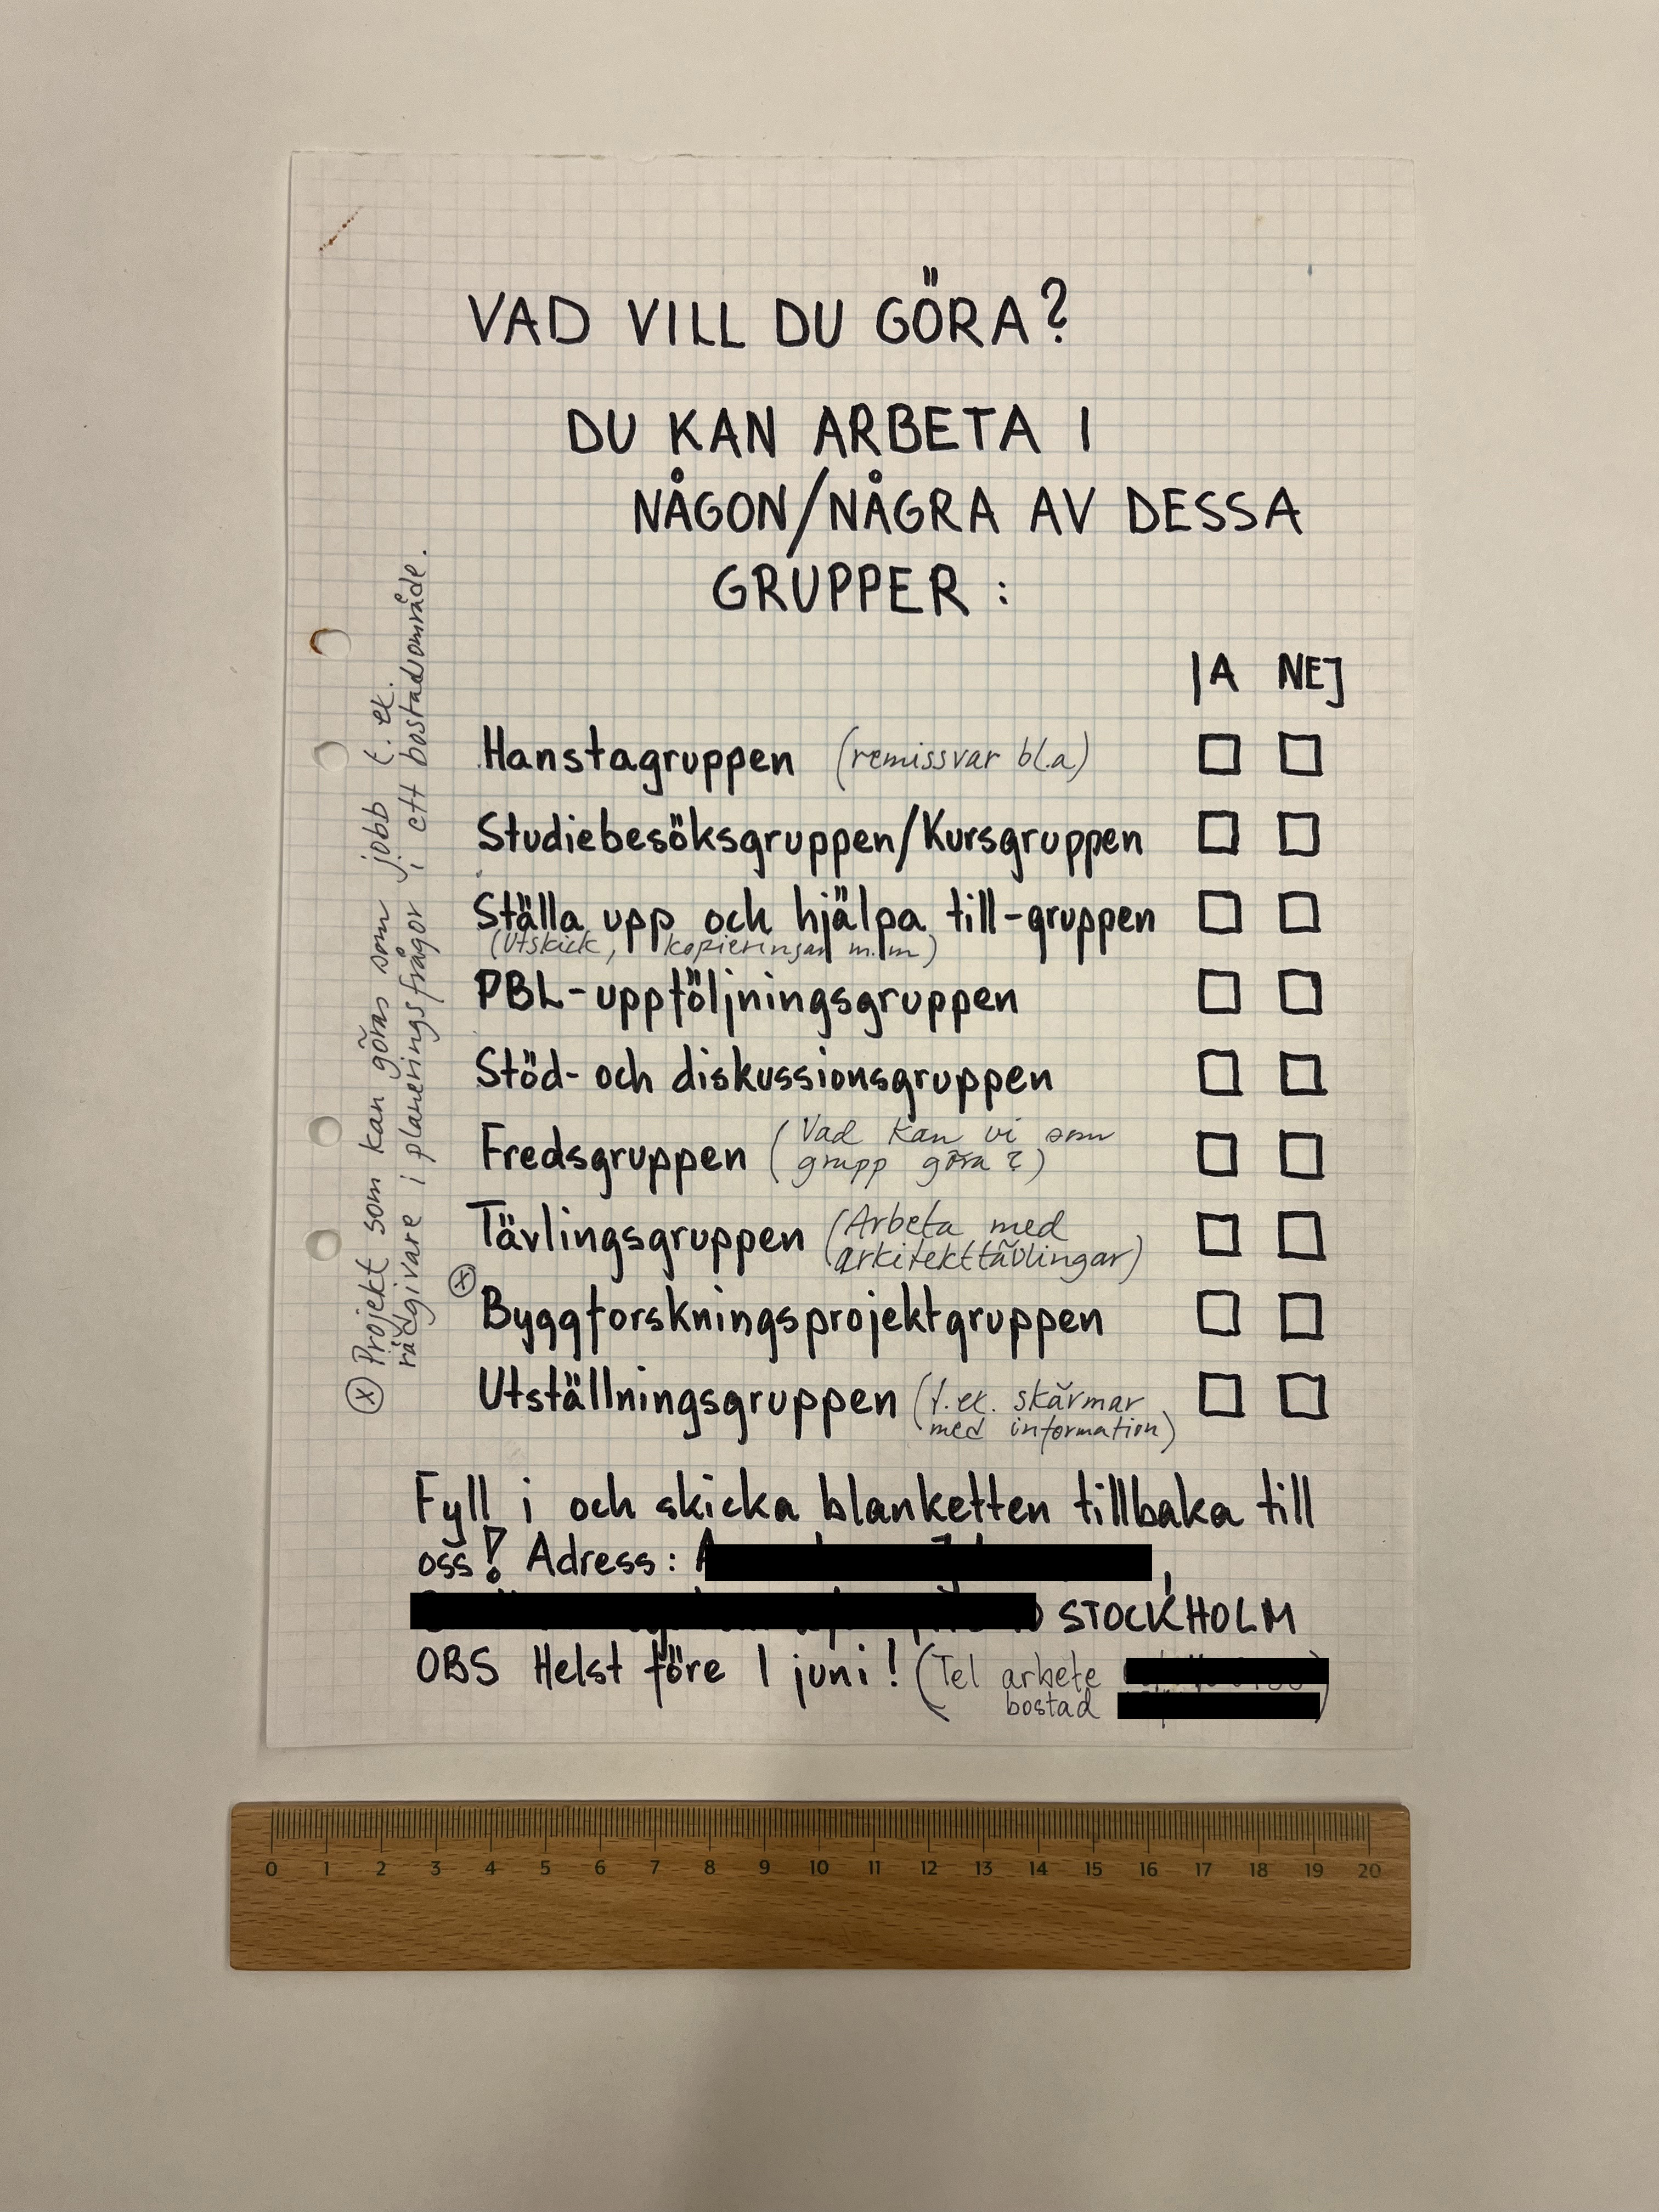 VAD VILL DU GÖRA?
DU KAN ARBETA I
NÅGON/NÅGRA AV DESSA
GRUPPER :
JA NEJ
Hanstagruppen (remissvar bl.a)
Studiebesöksgruppen/Kursgruppen
Ställa upp och hjälpa till-gruppen
(Utskick, kopieringar m.m)
PBL-uppföljningsgruppen
Stöd- och diskussionsgruppen
Fredsgruppen (Vad kan vi som
grupp göra?)
Tävlingsgruppen (Arbeta med
arkitekttävlingar)
(x) Byggforskningsprojektgruppen
Utställningsgruppen (t.ex. skärmar
med information)
(x) Projekt som kan göras som jobb t.ex.
rådgivare i planeringsfrågor i ett bostadsområde.
Fyll i och skicka blanketten tillbaka till
oss! Adress:
STOCKHOLM
OBS Helst före 1 juni! (Tel arbete
bostad )
0 1 2 3 4 5 6 7 8 9 10 11 12 13 14 15 16 17 18 19 20